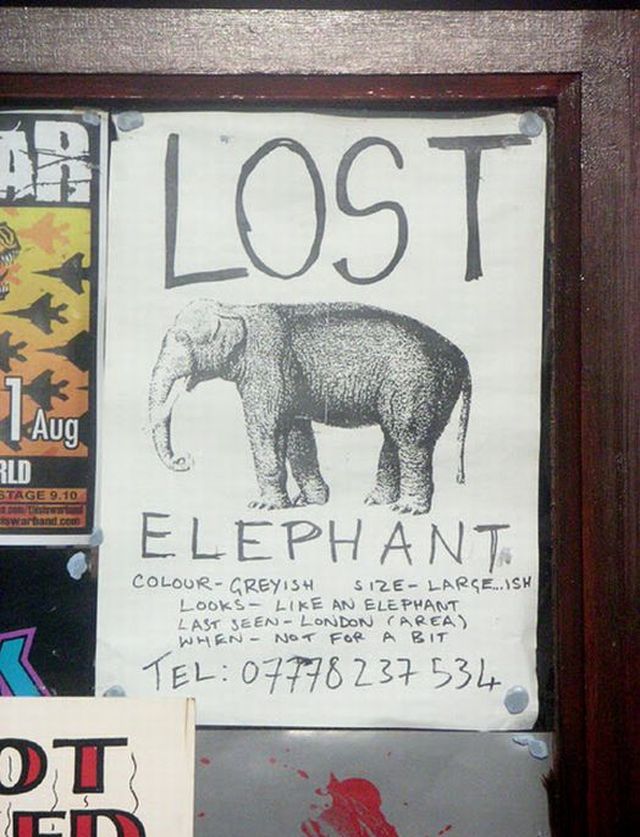 LOST
ELEPHANT
COLOUR - GREYISH SIZE - LARGE...ISH
LOOKS - LIKE AN ELEPHANT
LAST SEEN - LONDON (AREA)
WHEN - NOT FOR A BIT
TEL: 07778 237 534
AR
1 Aug
RLD
STAGE 9.10
iswarband.com
OT
ED